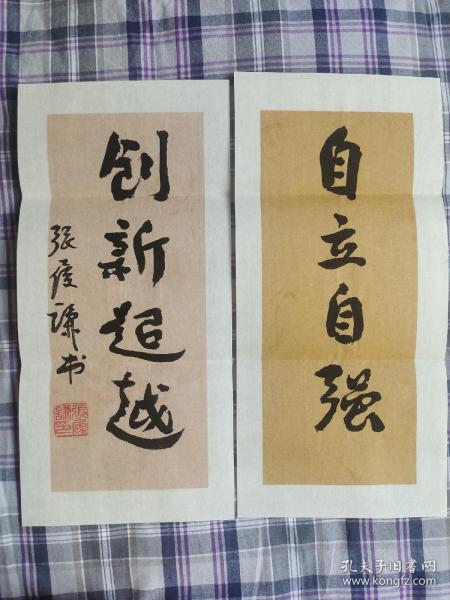 自立自强
创新超越
张俊谦书
孔夫子旧书网
www.kongfz.com